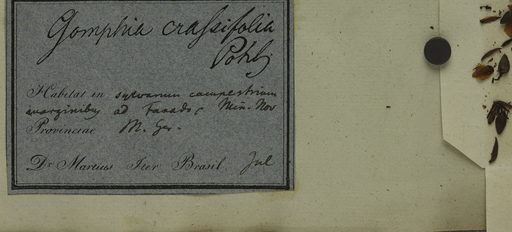 Gomphia crassifolia
Pohl
Habitat in sylvarum campestrium
marginibus ad Min. Nov
Provinciae M. Ger.
Dr Martius Iter Brasil. Jul